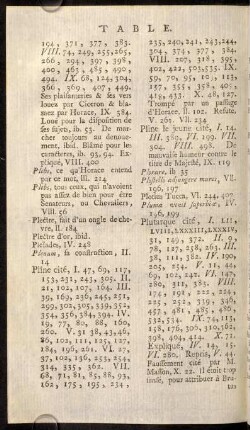 TABLE.
104, 371, 377, 383.
VIII. 74, 249, 255, 265,
266, 294, 397, 398,
400, 463, 485, 490,
494. IX. 68, 124, 304,
366, 369, 407, 449.
Ses plaisanteries & ses vers
loués par Ciceron & blâ-
mez par Horace, IX. 384.
Loué pour la disposition de
ses sujets, ib. 53. De mar-
cher toujours au dénoue-
ment, ibid. Blâmé pour les
caractères, ib. 95, 94. Ex-
pliqué, VIII. 400
Plebs, ce qu'Horace entend
par ce mot, III. 214
Plebs, tous ceux, qui n'avoient
pas assez de bien pour être
Senateurs, ou Chevaliers,
VIII. 56
Plectre, fait d'un ongle de che-
vre, II. 184
Plectre d'or, ibid.
Pleiades, IV. 248
Plenum, sa construction, II.
14
Pline cité, I. 47, 69, 117,
153, 231, 243, 305. II.
21, 102, 107, 164. III.
39, 169, 236, 245, 251,
299, 302, 305, 339, 352,
354, 356, 384, 394. IV.
19, 77, 80, 88, 160,
260. V. 31, 38, 43, 46,
86, 102, 111, 125, 127,
184, 196, 261. VI. 27,
37, 102, 136, 253, 254,
314, 335, 362. VII.
68, 71, 81, 85, 88, 93,
162, 175, 195, 234,
235, 240, 241, 243, 244,
304, 374, 377, 384.
VIII. 207, 318, 395,
402, 422, 503, 535. IX.
59, 70, 95, 103, 113,
157, 355, 358, 407,
419, 435. X. 48, 127.
Trompé par un passage
d'Horace, II. 102. Refuté.
V. 261. VII. 234
Pline le jeune cité, I. 12.
III. 360. IV. 199. VII.
304. VIII. 498. De
mauvaise humeur contre le
titre de Majesté, IX. 119
Plotius Tucca, VI. 244, 407
Plutarque cité, I. LII,
LVIII, LXXXIII, LXXXIV,
31, 149, 372. II. 5,
78, 127, 258, 263. III.
38, 111, 382. IV. 190,
205, 254. V. 11, 14,
69, 102, 242. VI. 147,
280, 311, 385. VIII.
174, 291, 222, 224,
225, 252, 339, 346,
457, 481, 485, 486,
532, 534. IX. 74, 113,
158, 176, 306, 310, 362,
398, 404, 414. X. 71.
Expliqué, IV. 14, 15.
VI. 280. Repris, V. 44.
Faussement cité par M.
Masson, X. 22. Il étoit trop
sensé, pour attribuer à Bru-